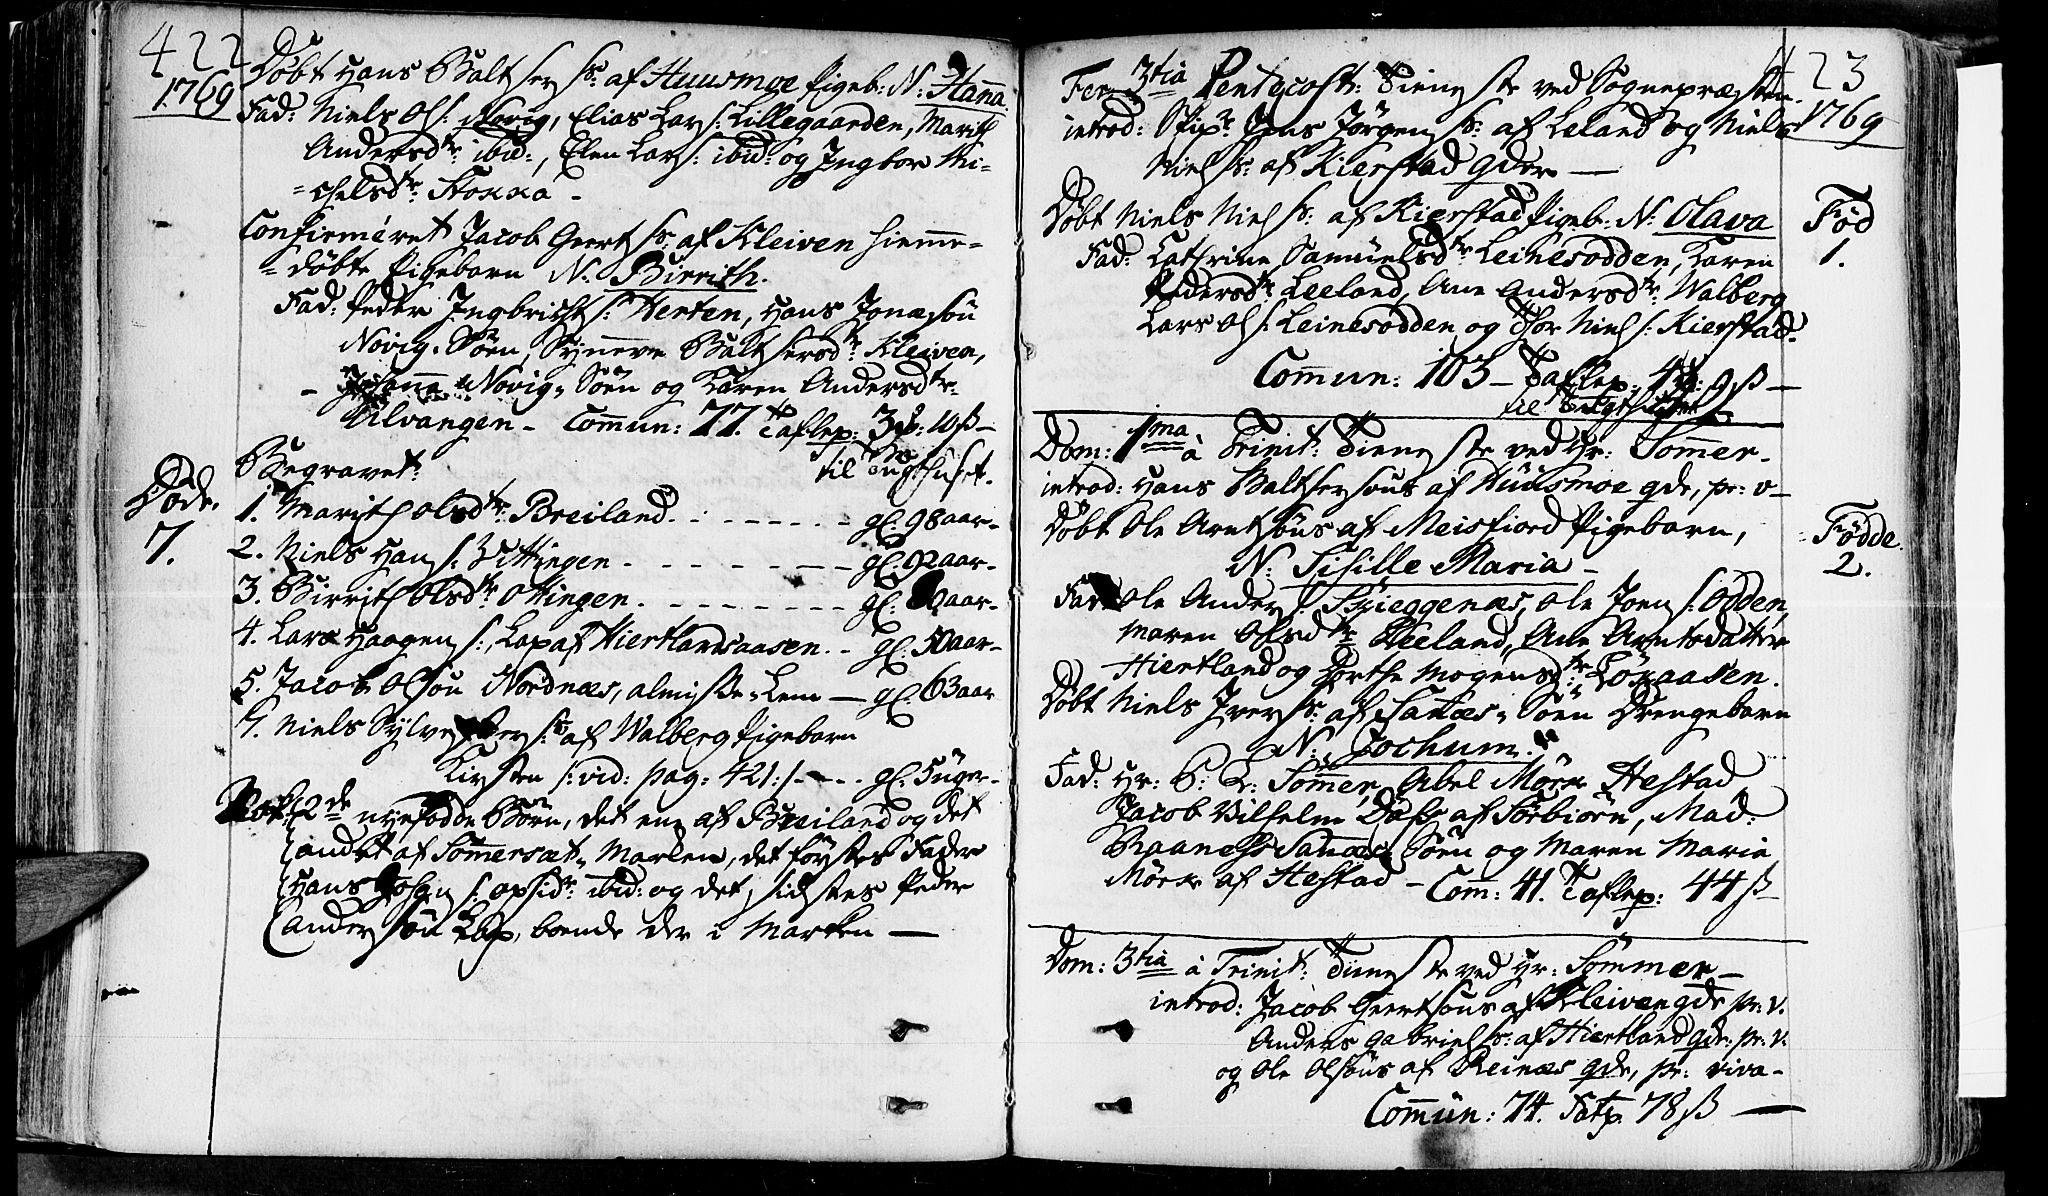 422
1769
Døbt Hans Baltzer ss: af Huusmoe Pigeb: N: Hana
Fad: Niels Ols: Novig, Elias Lars: Lillegaarden, Marith
Andersdtr: ibid:, Elen Lars: ibid: og Ingbor Mi-
=chelsdtr: Stokka -
Confirmeret Jacob Geertss: af Kleiven hieme-
=døbte Pigebarn N. Birrith.
Fad: Peder Ingbrichts: Herten, Hans Jonæsøn
Novig, Søen, Synneve Baltzersdtr: Kleiven,
- Novig, Søen og Karen Andersdtr:
Ulvangen - Comun: 77. Taflep: 3 10 ß -
til Tugthuset.
Begravet:
Døde.
7.
1. Marith Olsdtr: Breiland - - - - gl: 98 aar-
2. Niels Hans: Uttingen - - - - gl: 92 aar-
3. Birrith Olsdtr: Ottingen - - - - gl: aar-
4. Lars Haagens:, Lap af Hiertlandsaasen - gl: 50 aar-
5. Jacob Olsøn Nordnæs, almisse-Lem - gl: 63 aar
6. Niels Sylvester s: af Walberg Pigebarn
Kirsten /: vid: pag: 421:/ - - - gl: 5 uger-
Nok 2de nyefødde Børn, det ene af Breiland og det
andet af Somersæt-Marken, det førstes Fader
Hans Johans: opsidr: ibid: og det sidstes Peder
Andersøn Lap, boende der i Marken -
423
1769
Fer. 3tia Pentecost: Tieneste ved Sognepræsten.
introd: Skipr: Jens Jørgenss: af Leland og Niels
Nielss: af Kierstad qder -
Død
Fød
1.
Døbt Niels Nielss: af Kierstad Pigeb: N: Olava
Fad: Cathrine Samuelsdtr: Leinesodden, Karen
Pedersdtr: Leeland, Ane Andersdtr: Walberg
Lars Ols: Leinesodden og Thor Niels: Kierstad.
Comun: 103 - Taflep: 4 9 ß -
til Tugthuset
Dom: 1ma à Trinit: Tieneste ved Hr: Sommer.
introd: Hans Baltzersøns af Huusmoe qde, pr: v-
Døbt Ole Arntsøns af Meisfiord Pigebarn,
N: Sisille Maria -
Fødde.
2.
Fad: Ole Anders: Skieggenæs, Ole Joens: Odden,
Maren Olsdtr: Leeland, Ane Arntsdatter
Hiertland og Dorthe Mogensdtr: Løkaasen.
Døbt Niels Iverss: af Sanæs-Søen Drengebarn
N: Jochum.
Fad: Hr: P: L: Sommer, Abel Mørk Hestad
Jacob Vilhelm Dass af Forbiorn, Mad:
Sanæs, Søen og Maren Maria
Mørk af Hestad - Com: 41. Taflep: 44 ß -
Dom: 3tia à Trinit: Tieneste ved Hr: Sommer -
introd: Jacob Geertsøns af Kleiven qde pr: v.
Anders Gabrielss: af Hiertland qde: pr: v:
og Ole Olsøns af Reinæs qde, pr: viva -
Comun: 74. Tafp. 78 ß -